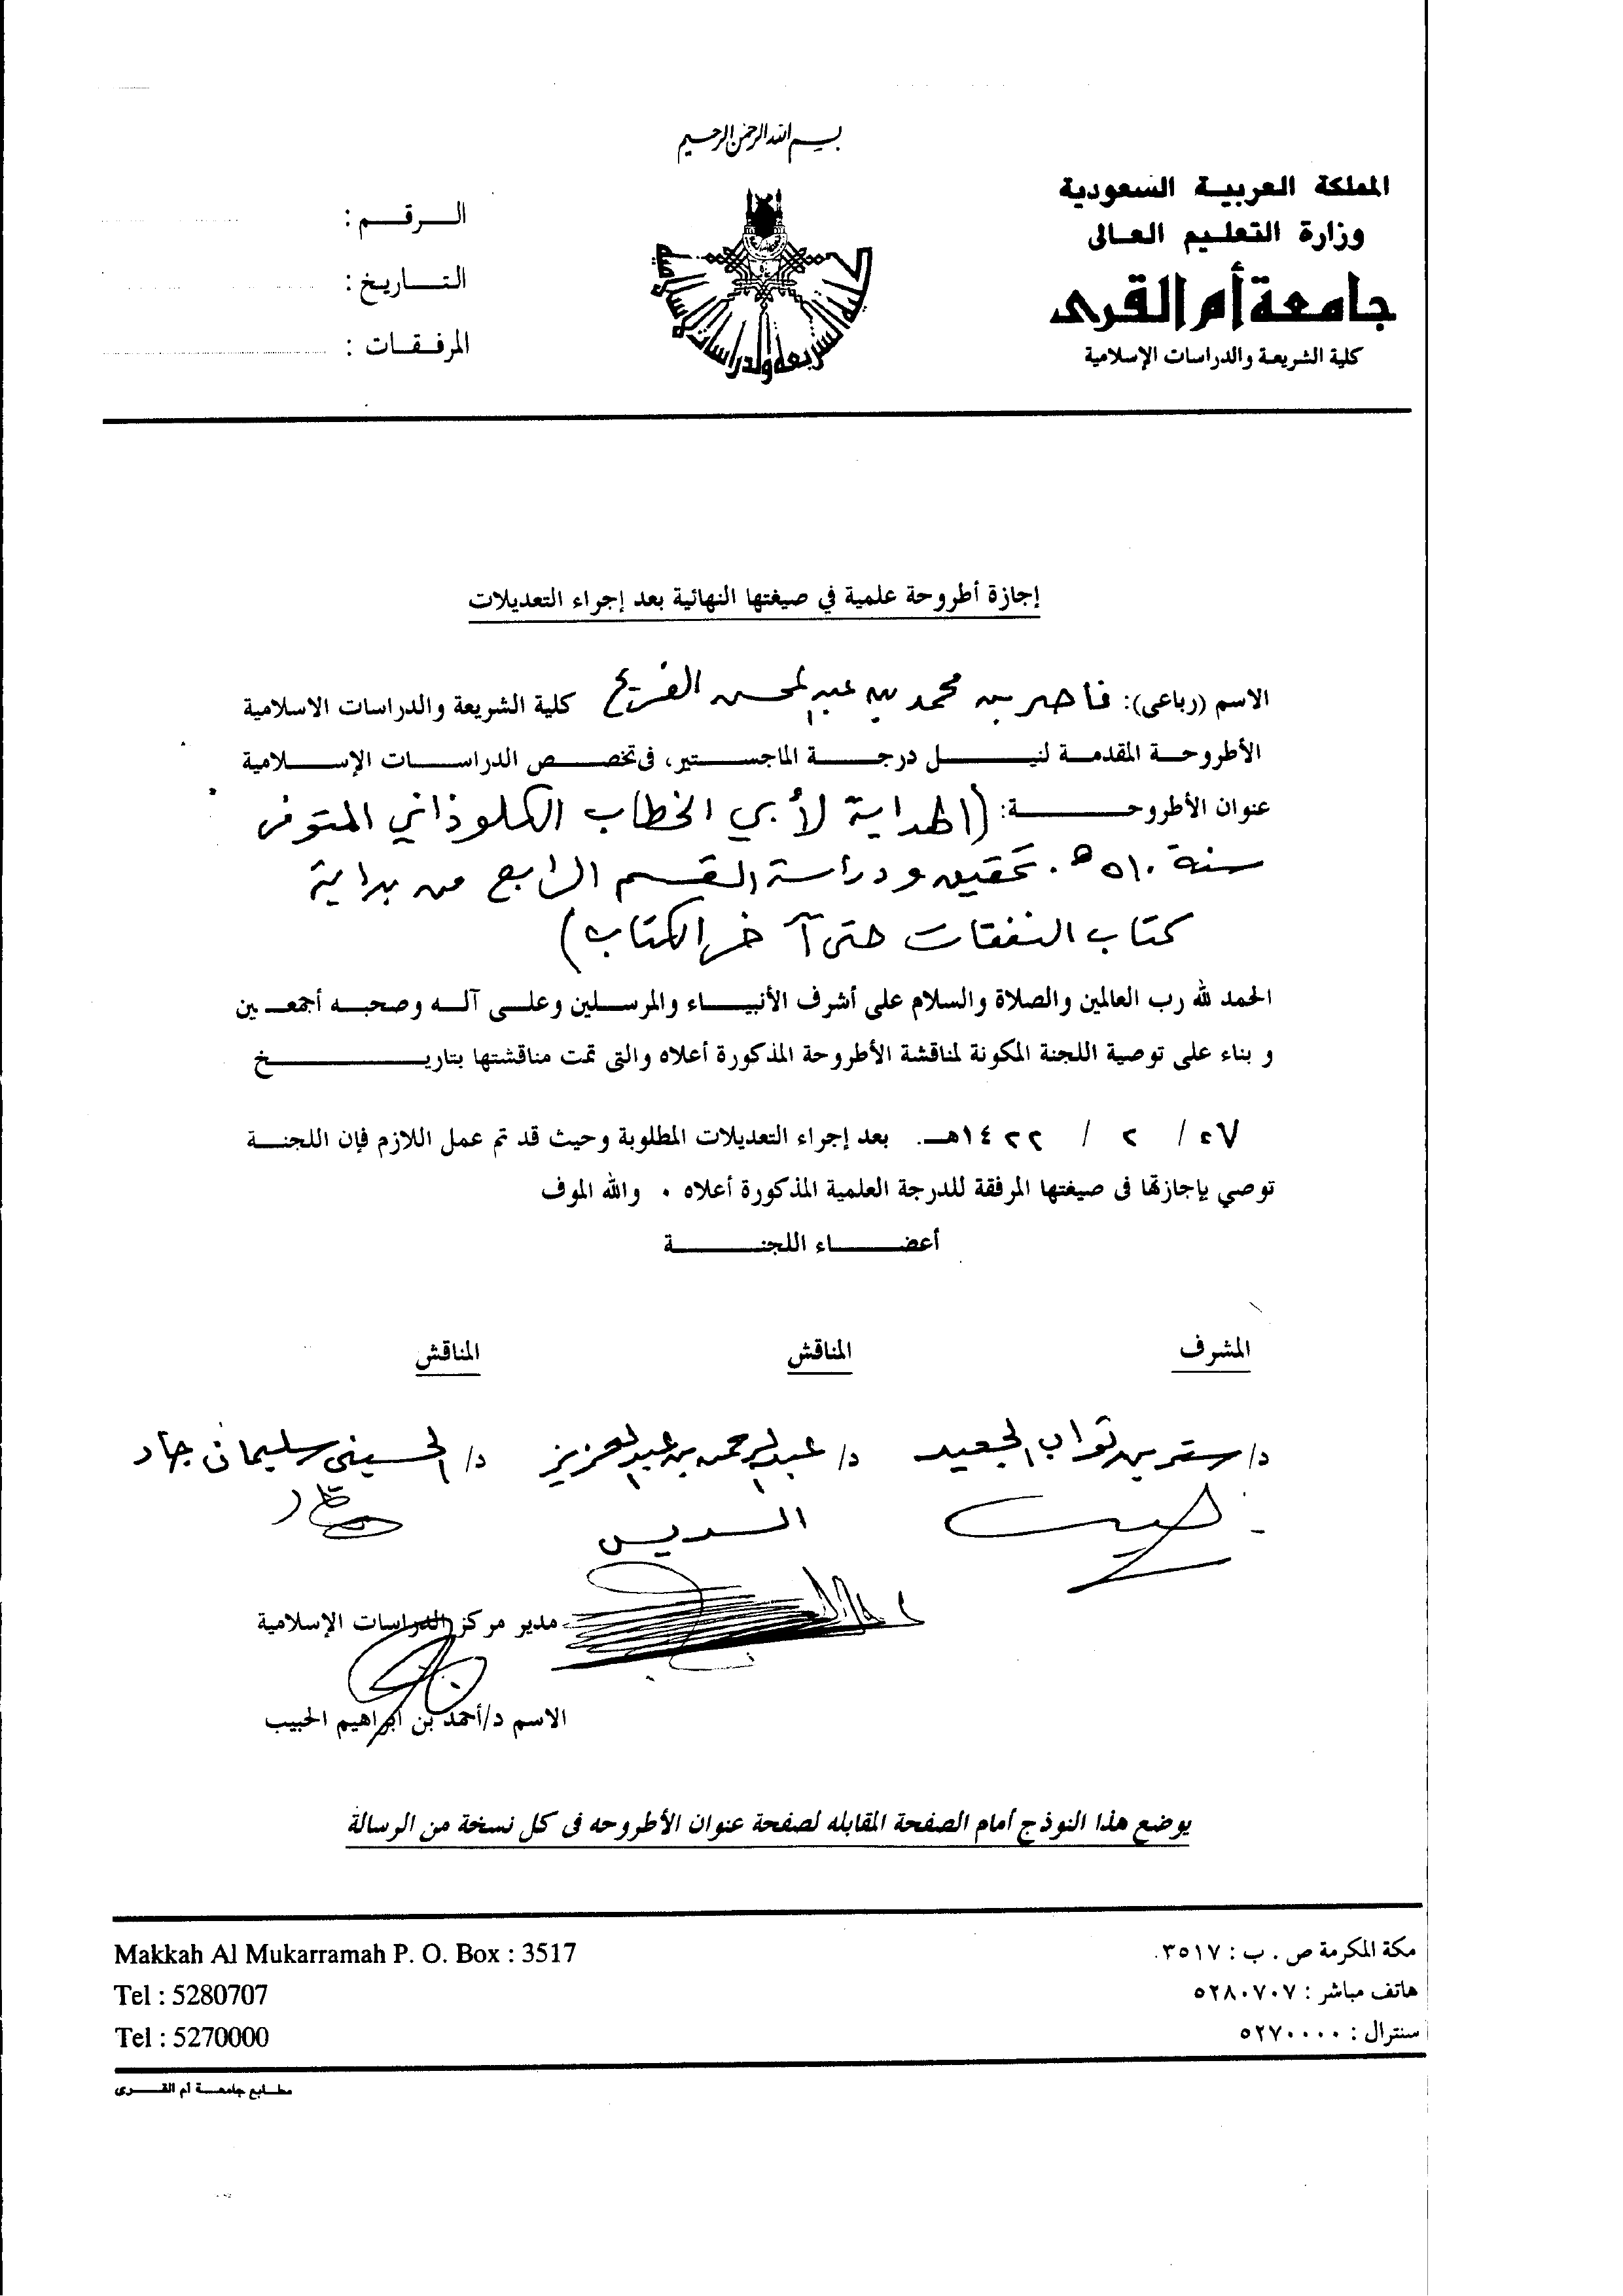 بسم الله الرحمن الرحيم
المملكة العربية السعودية
وزارة التعليم العالى
جامعة أم القرى
كلية الشريعة والدراسات الإسلامية
الرقم :
التاريخ :
المرفقات :
إجازة أطروحة علمية في صيغتها النهائية بعد إجراء التعديلات
الاسم (رباعى): ناصر بن محمد بن عبدالمحسن الفريح كلية الشريعة والدراسات الاسلامية
الأطروحة المقدمة لنيل درجة الماجستير، فى تخصص الدراسات الإسلامية
عنوان الأطروحة: (الهداية لأبي الخطاب الكلوذاني المتوفى
سنة ٥١٠ه. تحقيق ودراسة القسم الرابع من بداية
كتاب النفقات حتى آخر الكتاب)
الحمد لله رب العالمين والصلاة والسلام على أشرف الأنبياء والمرسلين وعلى آله وصحبه أجمعين
و بناء على توصية اللجنة المكونة لمناقشة الأطروحة المذكورة أعلاه والتى تمت مناقشتها بتاريخ
٢٧ / ٢ / ١٤٢٢هـ. بعد إجراء التعديلات المطلوبة وحيث قد تم عمل اللازم فإن اللجنة
توصي بإجازتها فى صيغتها المرفقة للدرجة العلمية المذكورة أعلاه . والله الموف
أعضاء اللجنة
المشرف المناقش المناقش
د/ ستر بن ثواب الجعيد د/ عبدالرحمن بن عبدالعزيز د/ الحسيني سليمان جاد
السديس
مدير مركز الدراسات الإسلامية
الاسم د/أحمد بن ابراهيم الحبيب
يوضع هذا النوذج أمام الصفحة المقابله لصفحة عنوان الأطروحه فى كل نسخة من الرسالة
مكة المكرمة ص . ب : ٣٥١٧.
هاتف مباشر : ٥٢٨٠٧٠٧
سنترال : ٥٢٧٠٠٠٠
Makkah Al Mukarramah P. O. Box : 3517
Tel : 5280707
Tel : 5270000
مطابع جامعة أم القرى